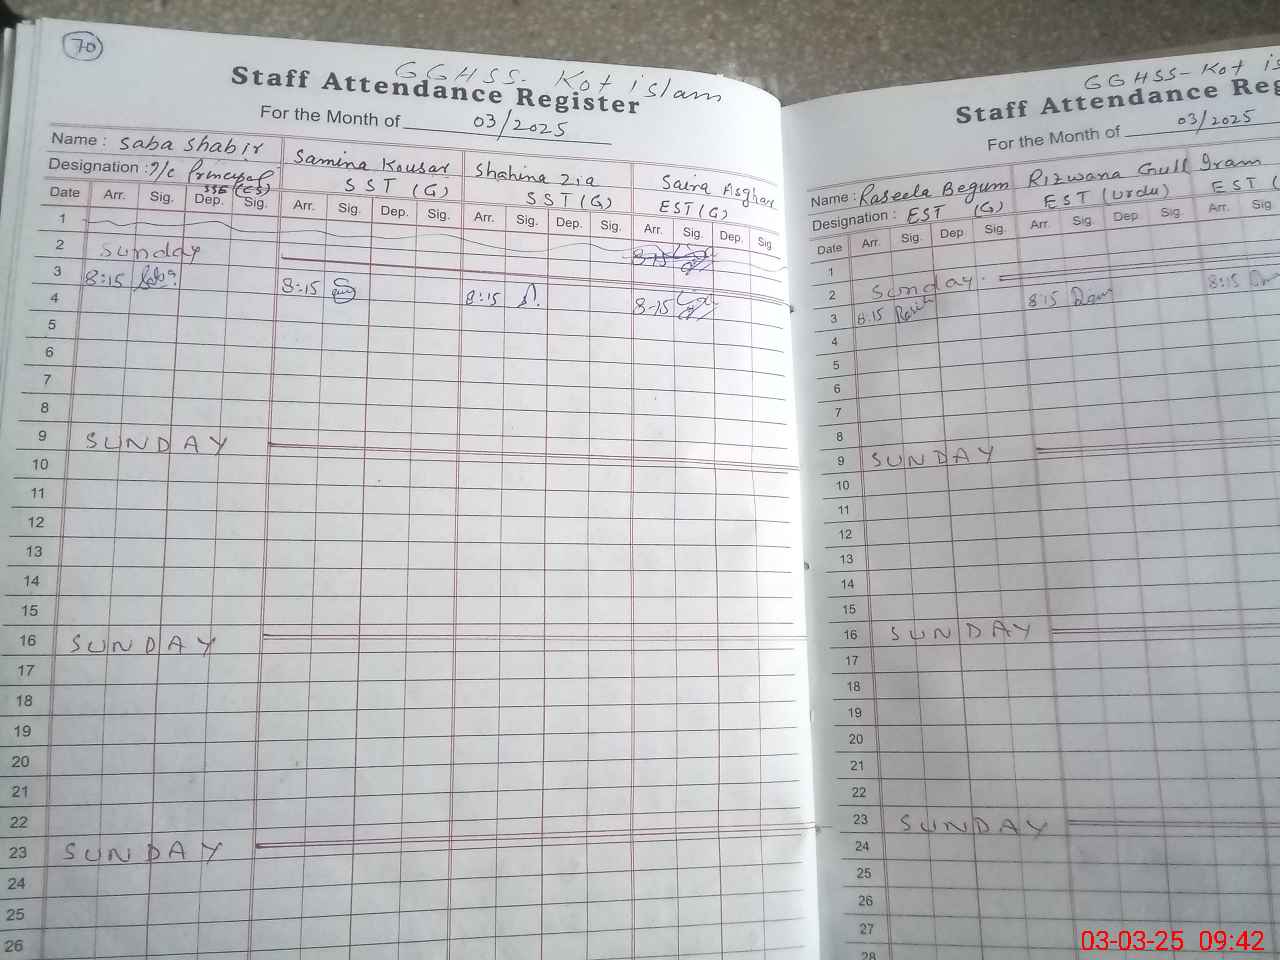 70
GGHSS- Kot islam
Staff Attendance Register
For the Month of 03/2025
Name : Saba Shabir Samina Kousar Shahina Zia Saira Asghar
Designation : I/C Principal SSE (CS) SST (G) SST (G) EST (G)
Date Arr. Sig. Dep. Sig. Arr. Sig. Dep. Sig. Arr. Sig. Dep. Sig. Arr. Sig. Dep. Sig.
1
2 Sunday 8-15
3 8:15 8:15 8:15 8-15
4
5
6
7
8
9 SUNDAY
10
11
12
13
14
15
16 SUNDAY
17
18
19
20
21
22
23 SUNDAY
24
25
26
GGHSS- Kot is
Staff Attendance Reg
For the Month of 03/2025
Name : Raseela Begum Rizwana Gull Iram
Designation : EST (G) EST (Urdu) EST (
Date Arr. Sig. Dep Sig. Arr. Sig. Dep Sig. Arr. Sig.
1
2 Sunday.
3 8:15 8:15 8:15
4
5
6
7
8
9 SUNDAY
10
11
12
13
14
15
16 SUNDAY
17
18
19
20
21
22
23 SUNDAY
24
25
26
27
28
03-03-25 09:42